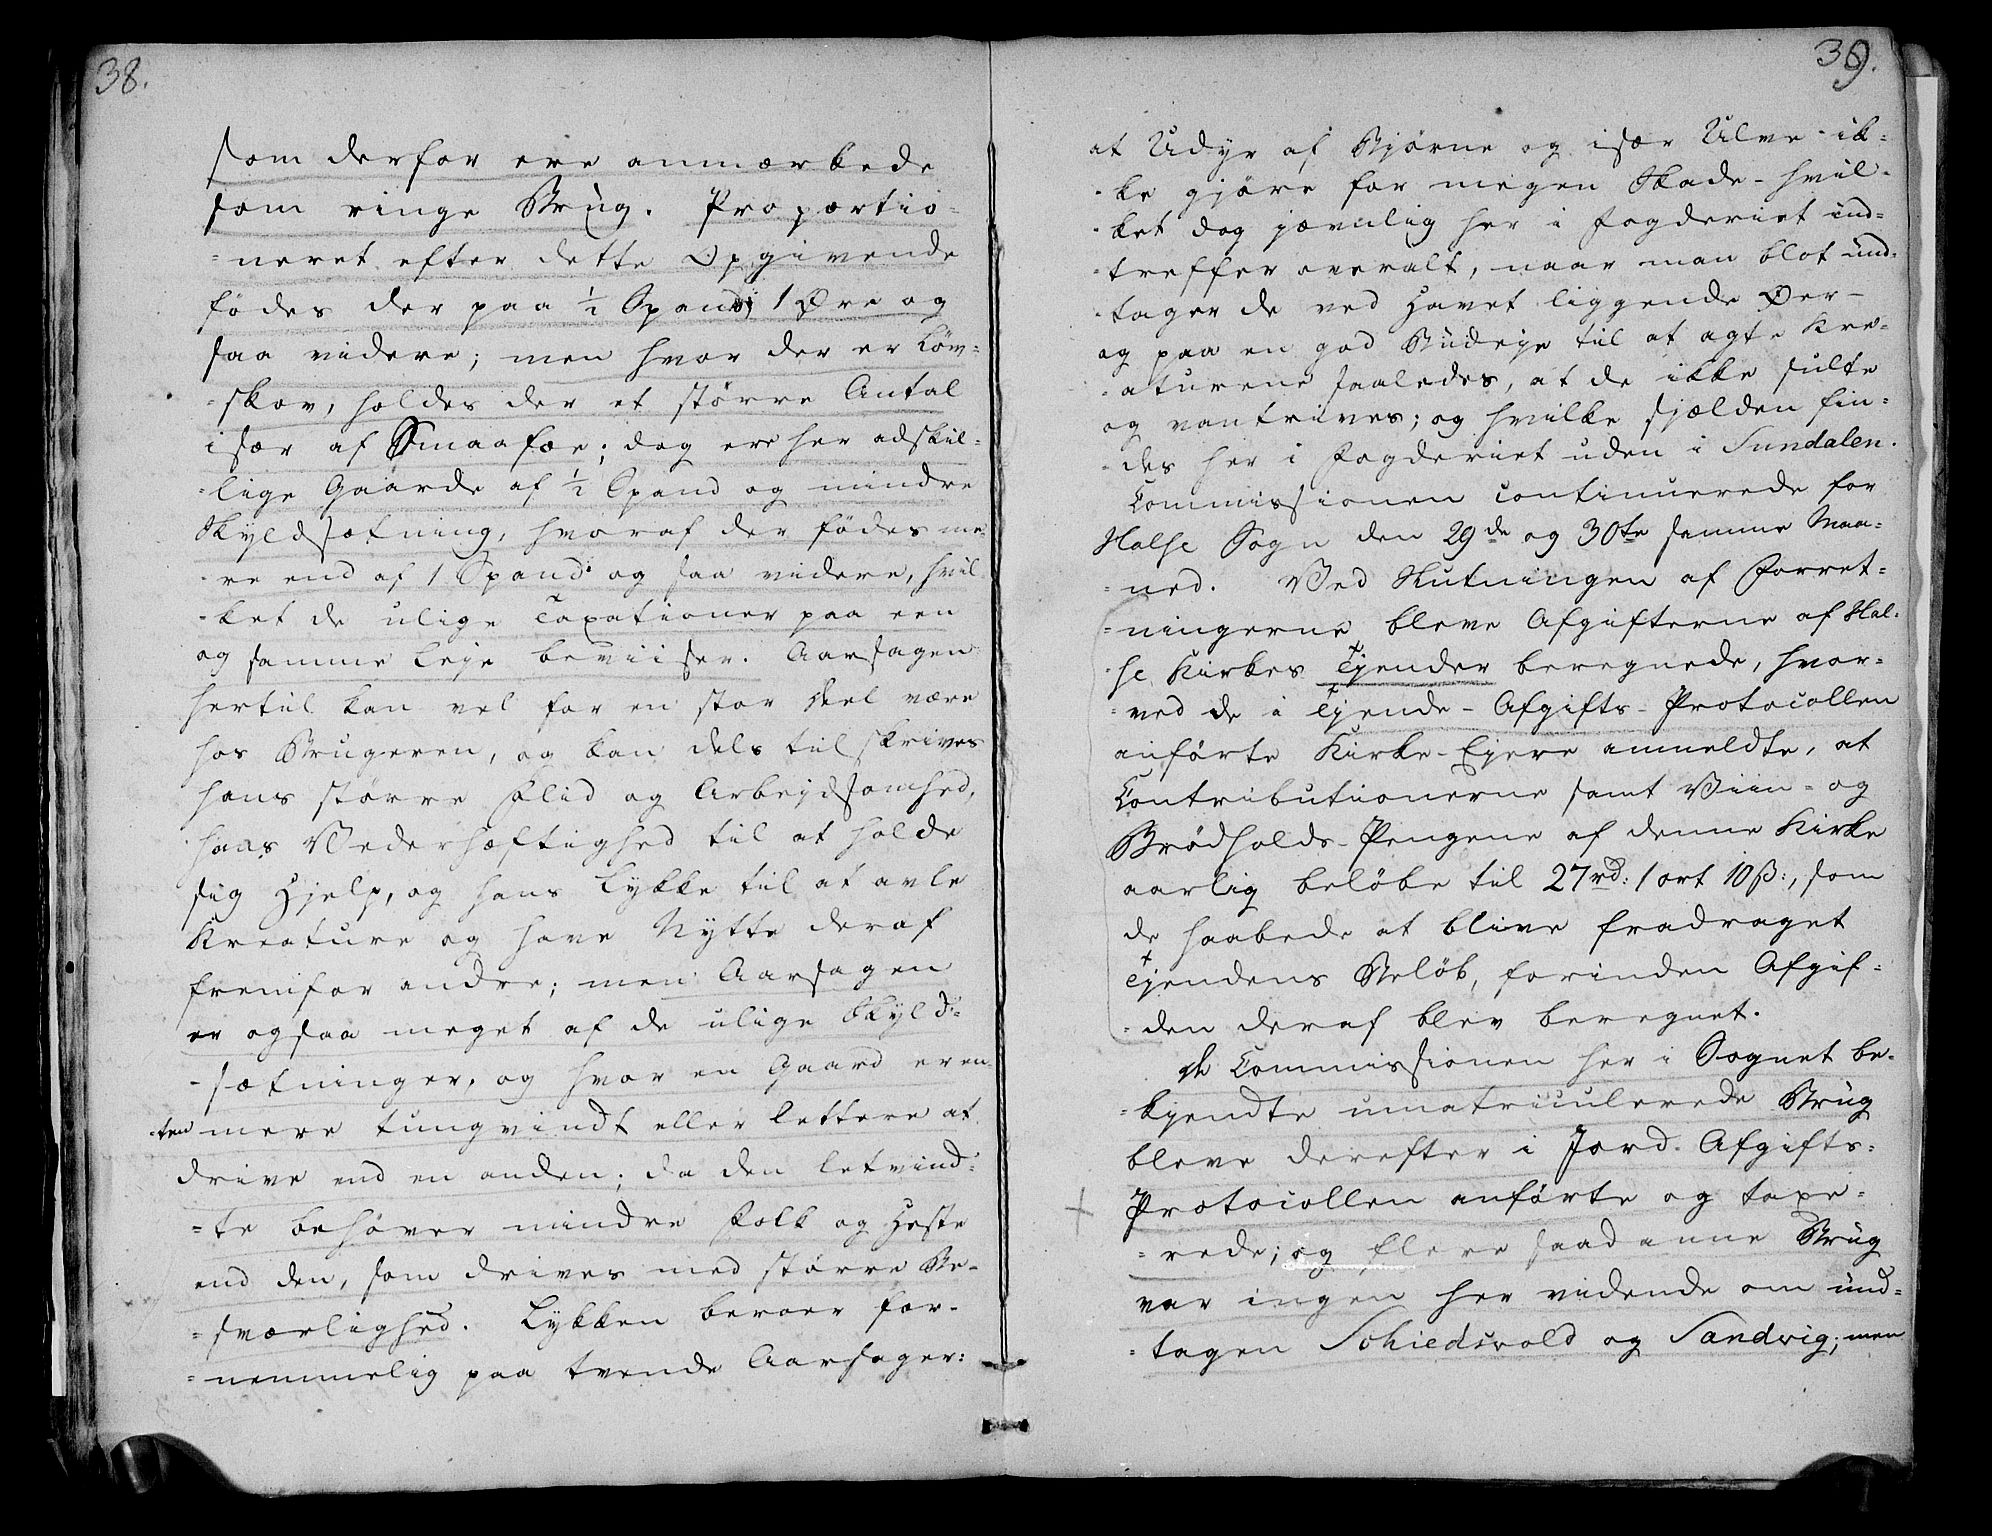 38.
som derfor ere anmærkede
som ringe Brug. Proportio-
=neret efter dette Opgivende
fødes der paa ½ Spand, 1 Øre og
saa videre; men hvor der er Løv-
-skov, holdes der et større Antal
især af Smaafæ; dog ere her adskil-
-lige Gaarde af ½ Spand og mindre
Skyldsætning, hvoraf der fødes me-
-re end af 1 Spand og saa videre, hvil-
-ket de ulige Taxationer paa een
og samme Leje beviiser. Aarsagen
hertil kan vel for en stor Deel være
hos Brugeren, og kan dels til skrives
hans større Flid og Arbejdsomhed,
hans Vederhæftighed til at holde
sig Hjelp, og hans Lykke til at avle
Kreature og have Nytte deraf
fremfor andre; men Aarsagen
er ogsaa meget af de ulige Skyld-
-sætninger, og hvor en Gaard er en-
-ten mere tungvindt eller lettere at
drive end en anden; da den letvind-
=te behøver mindre Folk og Heste
end den, som drives med større Be-
=sværlighed. Lykken beroer for-
=nemmelig paa tvende Aarsager:
39.
at Udyr af Bjørne og især Ulve ik-
-ke gjøre for megen Skade - hvil-
-ket dog jævnlig her i Fogderiet ind=
-treffer overalt, naar man blot und-
-tager de ved Havet liggende Øer -
og paa en god Budeje til at agte Kre-
-aturene saaledes, at de ikke sulte
og vantrives; og hvilke sjælden fin-
-des her i Fogderiet uden i Sundalen.
Commissionen continuerede for
Halse Sogn den 29de og 30te samme Maa-
=ned. Ved Slutningen af Forret-
=ningerne bleve Afgifterne af Hal-
-se Kirkes Tjender beregnede, hvor-
-ved de i Tjende-Afgifts-Protocollen
anførte Kirke-Ejere anmeldte, at
Contributionerne samt Viin- og
Brødholds-Pengene af denne Kirke
aarlig beløbe til 27rd: 1 ort 10ß:, som
de haabede at blive fradraget
Tjendens Beløb, forinden Afgif-
-den deraf blev beregnet.
De Commissionen her i Sognet be-
-kjendte umatriculerede Brug
bleve derefter i Jord-Afgifts-
Protocollen anførte og taxe-
-rede; og flere saadanne Brug
var ingen her vidende om und-
-tagen Schiedsvold og Sandvig; men